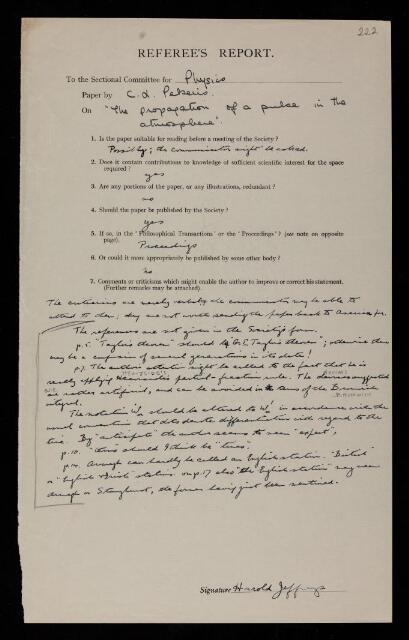 222
REFEREE'S REPORT.
To the Sectional Committee for Physics
Paper by C. L. Pekeris.
On "The propagation of a pulse in the
atmosphere".
1. Is the paper suitable for reading before a meeting of the Society?
Possibly; the communicator might be asked.
2. Does it contain contributions to knowledge of sufficient scientific interest for the space
required?
yes
3. Are any portions of the paper, or any illustrations, redundant?
no
4. Should the paper be published by the Society?
yes
5. If so, in the 'Philosophical Transactions' or the 'Proceedings'? (see note on opposite
page).
Proceedings
6. Or could it more appropriately be published by some other body?
no
7. Comments or criticisms which might enable the author to improve or correct his statement.
(Further remarks may be attached).
The criticisms are merely verbal; the communicator may be able to
attend to them; they are not worth sending the paper back to America for.
The references are not given in the Society's form.
p.5. "Taylor's theorem" should be "G.I. Taylor's theorem"; otherwise there
may be a confusion of several generations in its date!
The author's attention might be called to the fact that he is
really applying Heaviside's partial-fraction rule. The
are rather artificial, and can be avoided in the
integral.
The notation should be altered to in accordance with the
usual convention that dots denote differentiation with regard to the
time. By "anticipate" the author seems to mean "expect";
p.10. "two should I think be "two".
p.14. Armagh can hardly be called an English station. "British"
or "English & Irish" stations. on p.17 also "the English station" may mean
Armagh or Stonyhurst, the former having just been mentioned.
Signature Harold Jeffreys